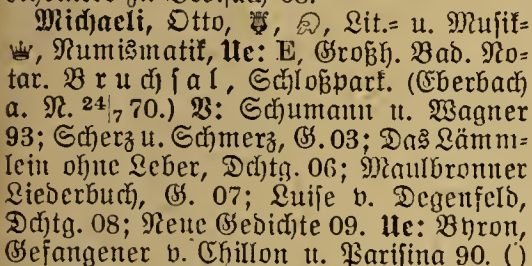 Michaeli, Otto, Lit.= u. Musik=
Numismatik, Ue: E, Großh. Bad. No=
tar. Bruchsal, Schloßpark. (Eberbach
a. N. 24|7 70.) V: Schumann u. Wagner
93; Scherz u. Schmerz, G. 03; Das Lämm=
lein ohne Leber, Dchtg. 06; Maulbronner
Liederbuch, G. 07; Luise v. Degenfeld,
Dchtg. 08; Neue Gedichte 09. Ue: Byron,
Gefangener v. Chillon u. Parisina 90. ()